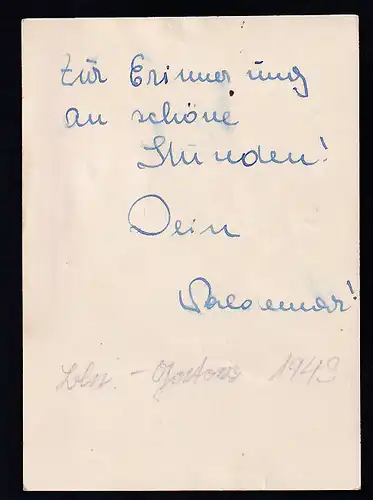 Zur Erinnerung
an schöne
Stunden!
Dein
Waldemar!
1943